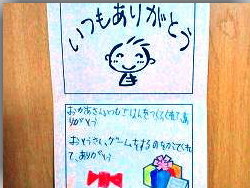 いつもありがとう
おかあさんいつもごはんをつくってくれて、あ
りがとう
おとうさん、ゲームをするのをかってくれ
て、ありがとう